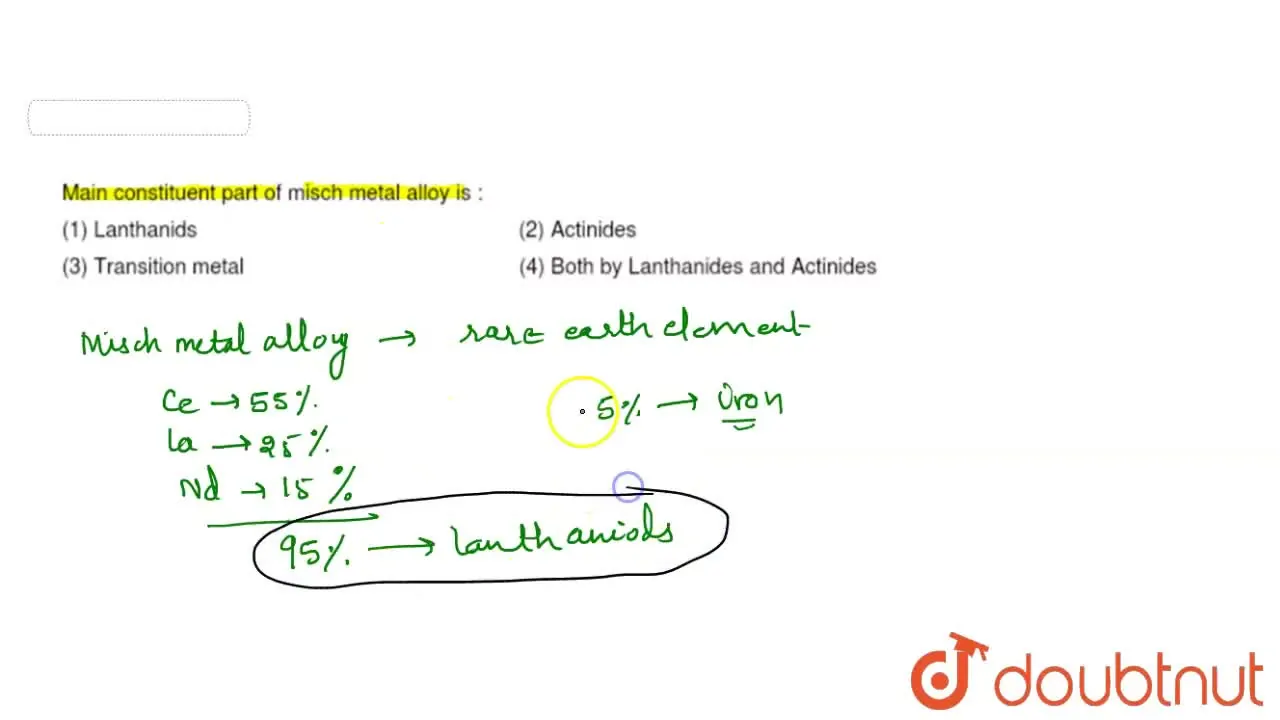 Main constituent part of misch metal alloy is :
(1) Lanthanids (2) Actinides
(3) Transition metal (4) Both by Lanthanides and Actinides
Misch metal alloy → rare earth element
Ce → 55%. 5%. → Iron
La → 25%.
Nd → 15%
95%. → Lanthaniods
doubtnut